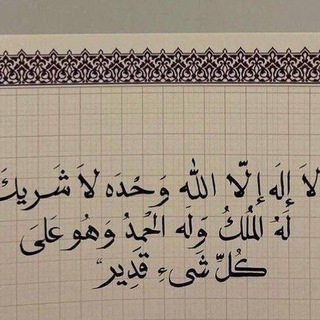 لاَ إِلَه إِلّا اللّٰه وَحْدَه لاَ شَرِيكَ
لَهُ المُلكُ وَلَه الحَمدُ وَهُو عَلَىَ
كُلِّ شَىءٍ قَدِير